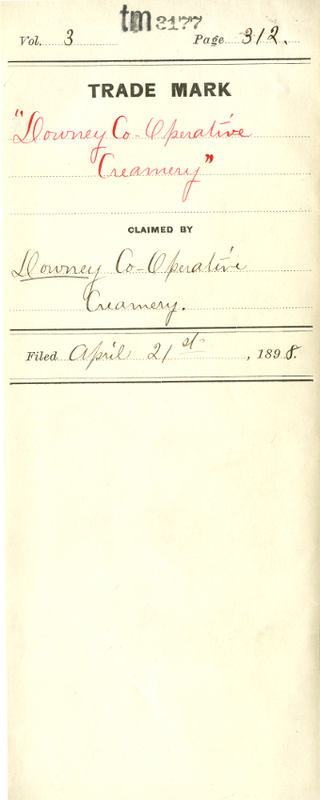 tm 3177
Vol. 3 Page 312.
TRADE MARK
"Downey Co-Operative
Creamery"
CLAIMED BY
Downey Co-Operative
Creamery.
Filed April 21st, 1898.